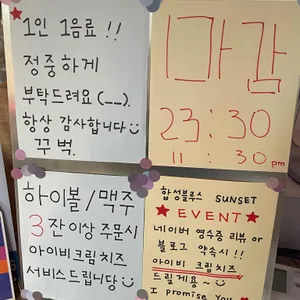 1인 1음료 !!
정중하게
부탁드려요 (__).
항상 감사합니다
꾸벅.
마감
23:30
11:30 pm
하이볼/맥주
3잔 이상 주문시
아이비크림치즈
서비스드립니당
합성블루스 SUNSET
★ EVENT ★
네이버 영수증 리뷰 or
블로그 약속시!!
아이비 크림치즈
드릴게용~
I promise You ♥